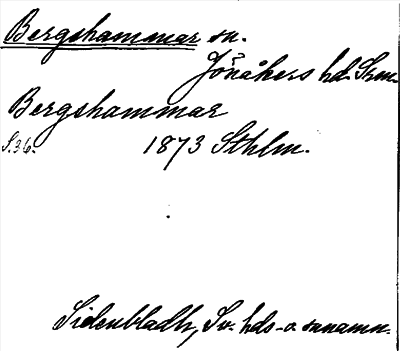 Bergshammar sn.
Jönåkers hd. Srm.
Bergshammar
S.36. 1873 Sthlm.
Sidenbladh, Sv. hds- o. snnamn.